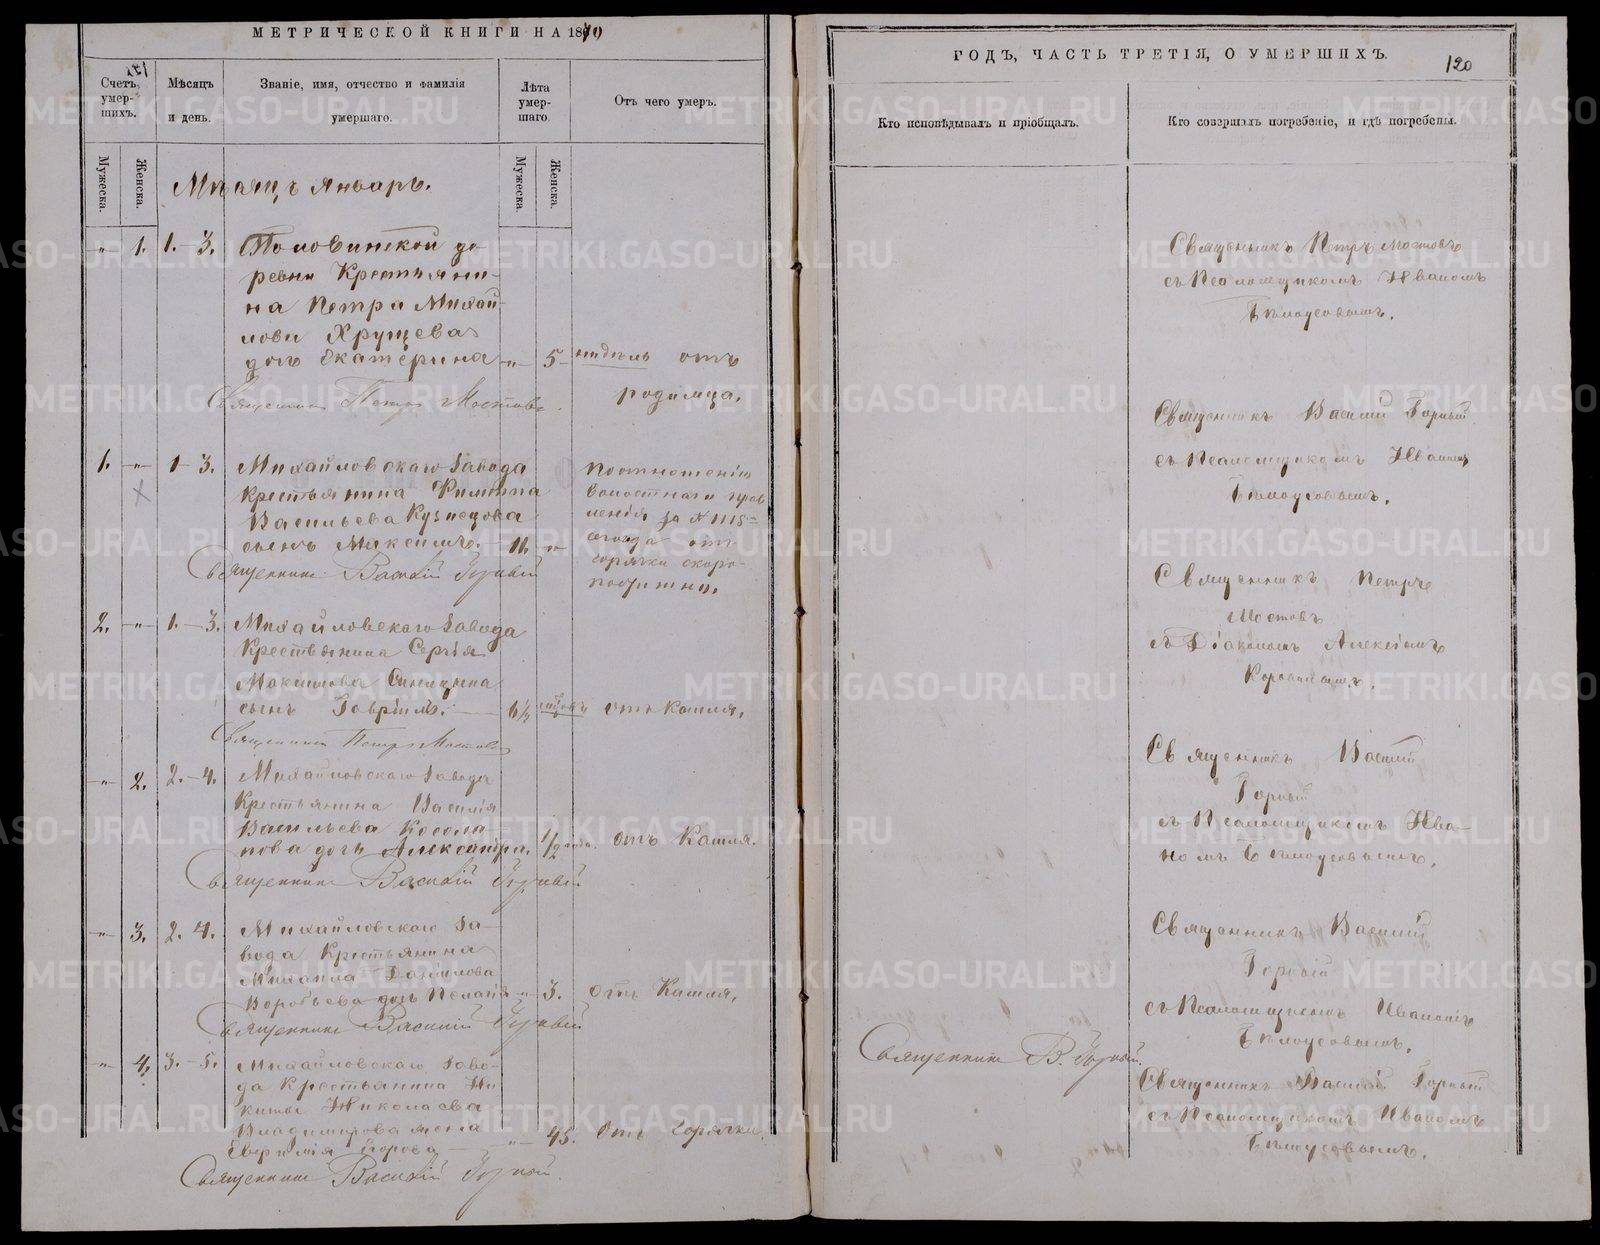 МЕТРИЧЕСКОЙ КНИГИ НА 1870
Счетъ умер-шихъ.
Мѣсяцъ и день.
Званіе, имя, отчество и фамилія умершаго.
Лѣта умер-шаго.
Отъ чего умеръ.
Мужеска.
Женска.
Мужеска.
Женска.
Мѣсяцъ Январь.
" 1. 1.-3. Половинской де-
ревни Крестьяни-
на Петра Михай-
лова Хрущева
дочь Екатерина " 5 недѣль отъ
родимца.
Священникъ Петръ Мостовъ.
1. " 1-3. Михайловскаго Завода
Крестьянина Филиппа
Васильева Кузнецова
сынъ Максимъ. 11. "
По отношенію
волостнаго прав
ленія за № 1115
отъ
горячки скоро-
постижно.
Священникъ Василій Горный
2. " 1.-3. Михайловскаго Завода
Крестьянина Сергія
Максимова Синицына
сынъ Гавріилъ. 6½ отъ Кашля.
Священникъ Петръ Мостовъ
" 2. 2.-4. Михайловскаго Завода
Крестьянина Василія
Васильева Косола-
пова дочь Александра. 1/2 года. отъ Кашля.
Священникъ Василій Горный
" 3. 2. 4. Михайловскаго За-
вода Крестьянина
Михаила Данилова
Воробьева дочь Пелагія " 3. отъ Кашля,
Священникъ Василій Горный
" 4. 3.-5. Михайловскаго Заво-
да Крестьянина Ни
киты Николаева
Владимирова жена
Егорова " 45. Отъ Горячки.
Священникъ Василій Горный
ГОДЪ, ЧАСТЬ ТРЕТІЯ, О УМЕРШИХЪ.
120
Кто исповѣдывалъ и пріобщалъ.
Кто совершалъ погребеніе, и гдѣ погребены.
Священникъ Петръ Мостовъ
съ Псаломщикомъ Иваномъ
Бѣлоусовымъ.
Священникъ Василій Горный
съ Псаломщикомъ Иваномъ
Бѣлоусовымъ.
Священникъ Петръ
Мостовъ
съ Діакономъ Алексіемъ
Коровинымъ.
Священникъ Василій
Горный
съ Псаломщикомъ Ива-
номъ Бѣлоусовымъ.
Священникъ Василій
Горный
съ Псаломщикомъ Иваномъ
Бѣлоусовымъ.
Священникъ В. Горный.
Священникъ Василій Горный
съ Псаломщикомъ Иваномъ
Бѣлоусовымъ.
METRIKI.GASO-URAL.RU